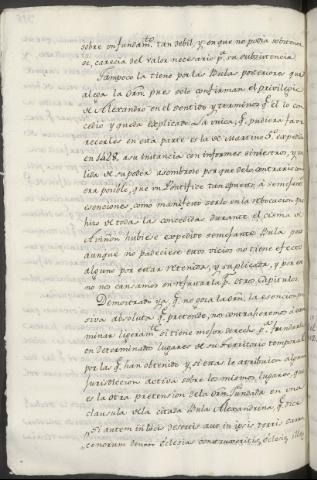 sobre un fundam.to tan debil, y en que no podia sobstener
se, carecia del valor necesario p.a su subsistencia.
Tampoco la tiene por las Bulas posteriores que
alega la Orn. pues solo confirman el privilegio
de Alexandro en el sentido y terminos q.e el lo con
cedio y queda explicado. La unica q.e pudiera favo
recerles en esta parte es la de Martino 5.o expedida
en 1428, a su instancia con informes siniestros, y
de supodia asombrios por que de lo contrario
era posible, que un Pontifice tan opuesto à semejantes
esenciones, como manifestó serlo en la rebocacion que
hizo de todas las concedidas durante el cisma de
Aviñon hubiese expedido semejante Bula pero
aunque no padeciese estos vicios no tiene efecto
alguno por estar retenida, y suplicada, y por eso
no nos cansamos en refutarla p.r otros capitulos.
Demostrado ya q.e no goza la Orn. la esencion pa
siva absoluta q.e pretende, nos contraheremos à exa
minar ligeram.te si tiene mejor derecho p.a fundarla
en determinados lugares de su territorio temporal
por las q.e han obtenido y si estas le atribuien alguna
Jurisdiccion activa sobre los mismos lugares, que
es la otra pretension de la Orn. fundada en una
clausula de la citada Bula Alexandrina q.e dice
„Si autem in locis desertis aut in ipsis terris Sarra
„cenorum denuo Eclesias construxeritis, Eclesiæ illæ